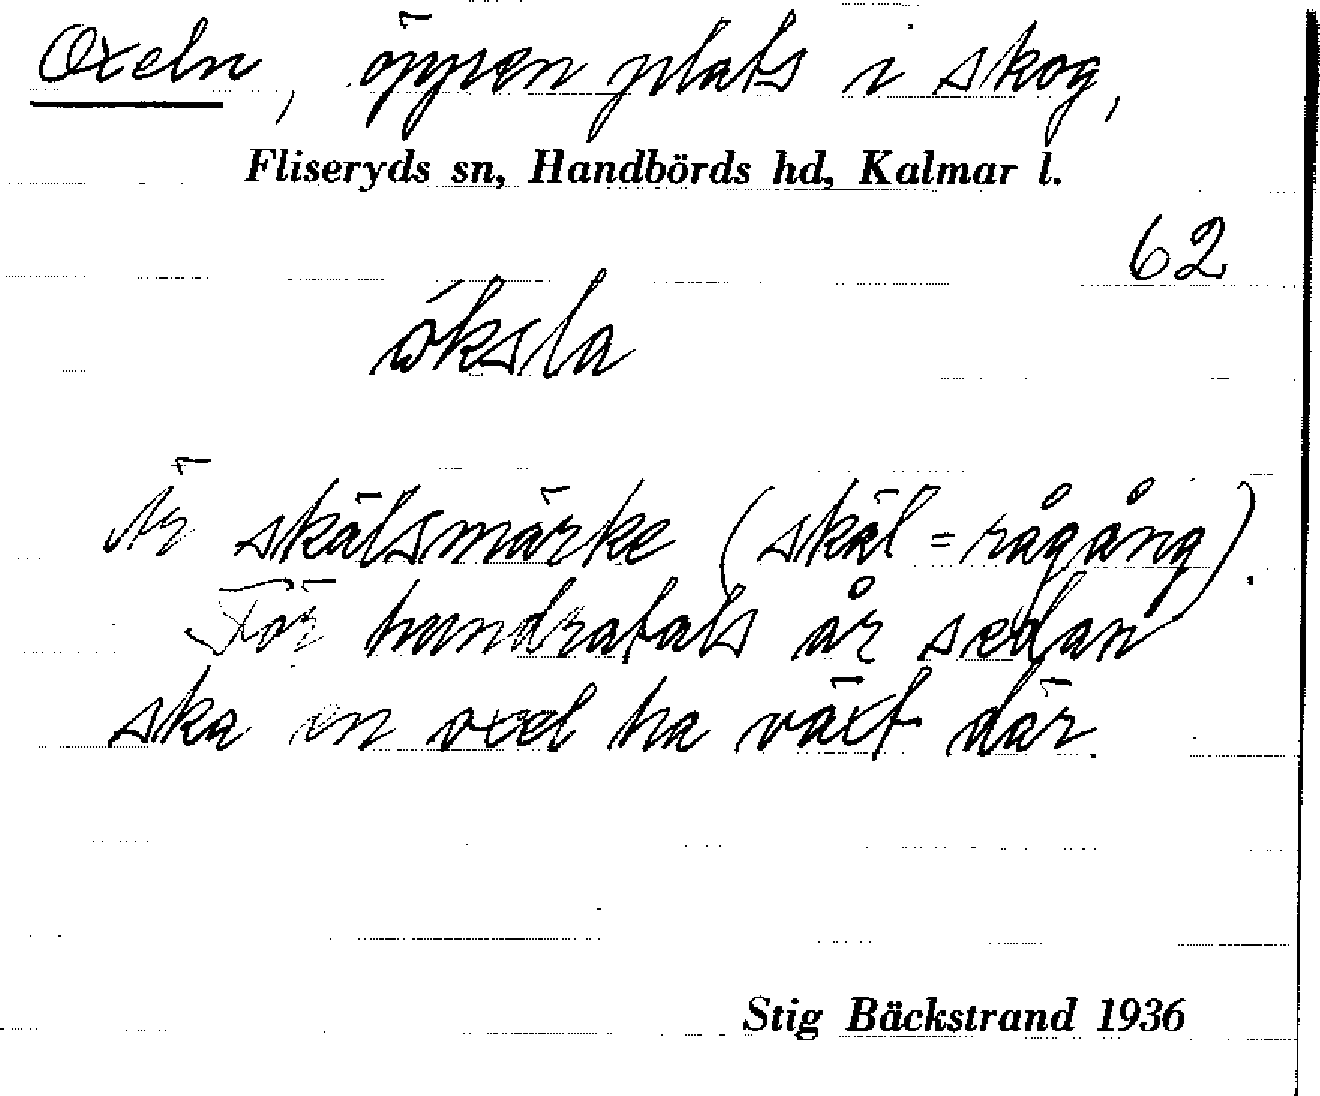 Oxeln, öppen plats i skog,
Fliseryds sn, Handbörds hd, Kalmar l.
62
óksla
Är skälsmärke (skäl = rågång).
För hundratals år sedan
ska en oxel ha växt där.
Stig Bäckstrand 1936